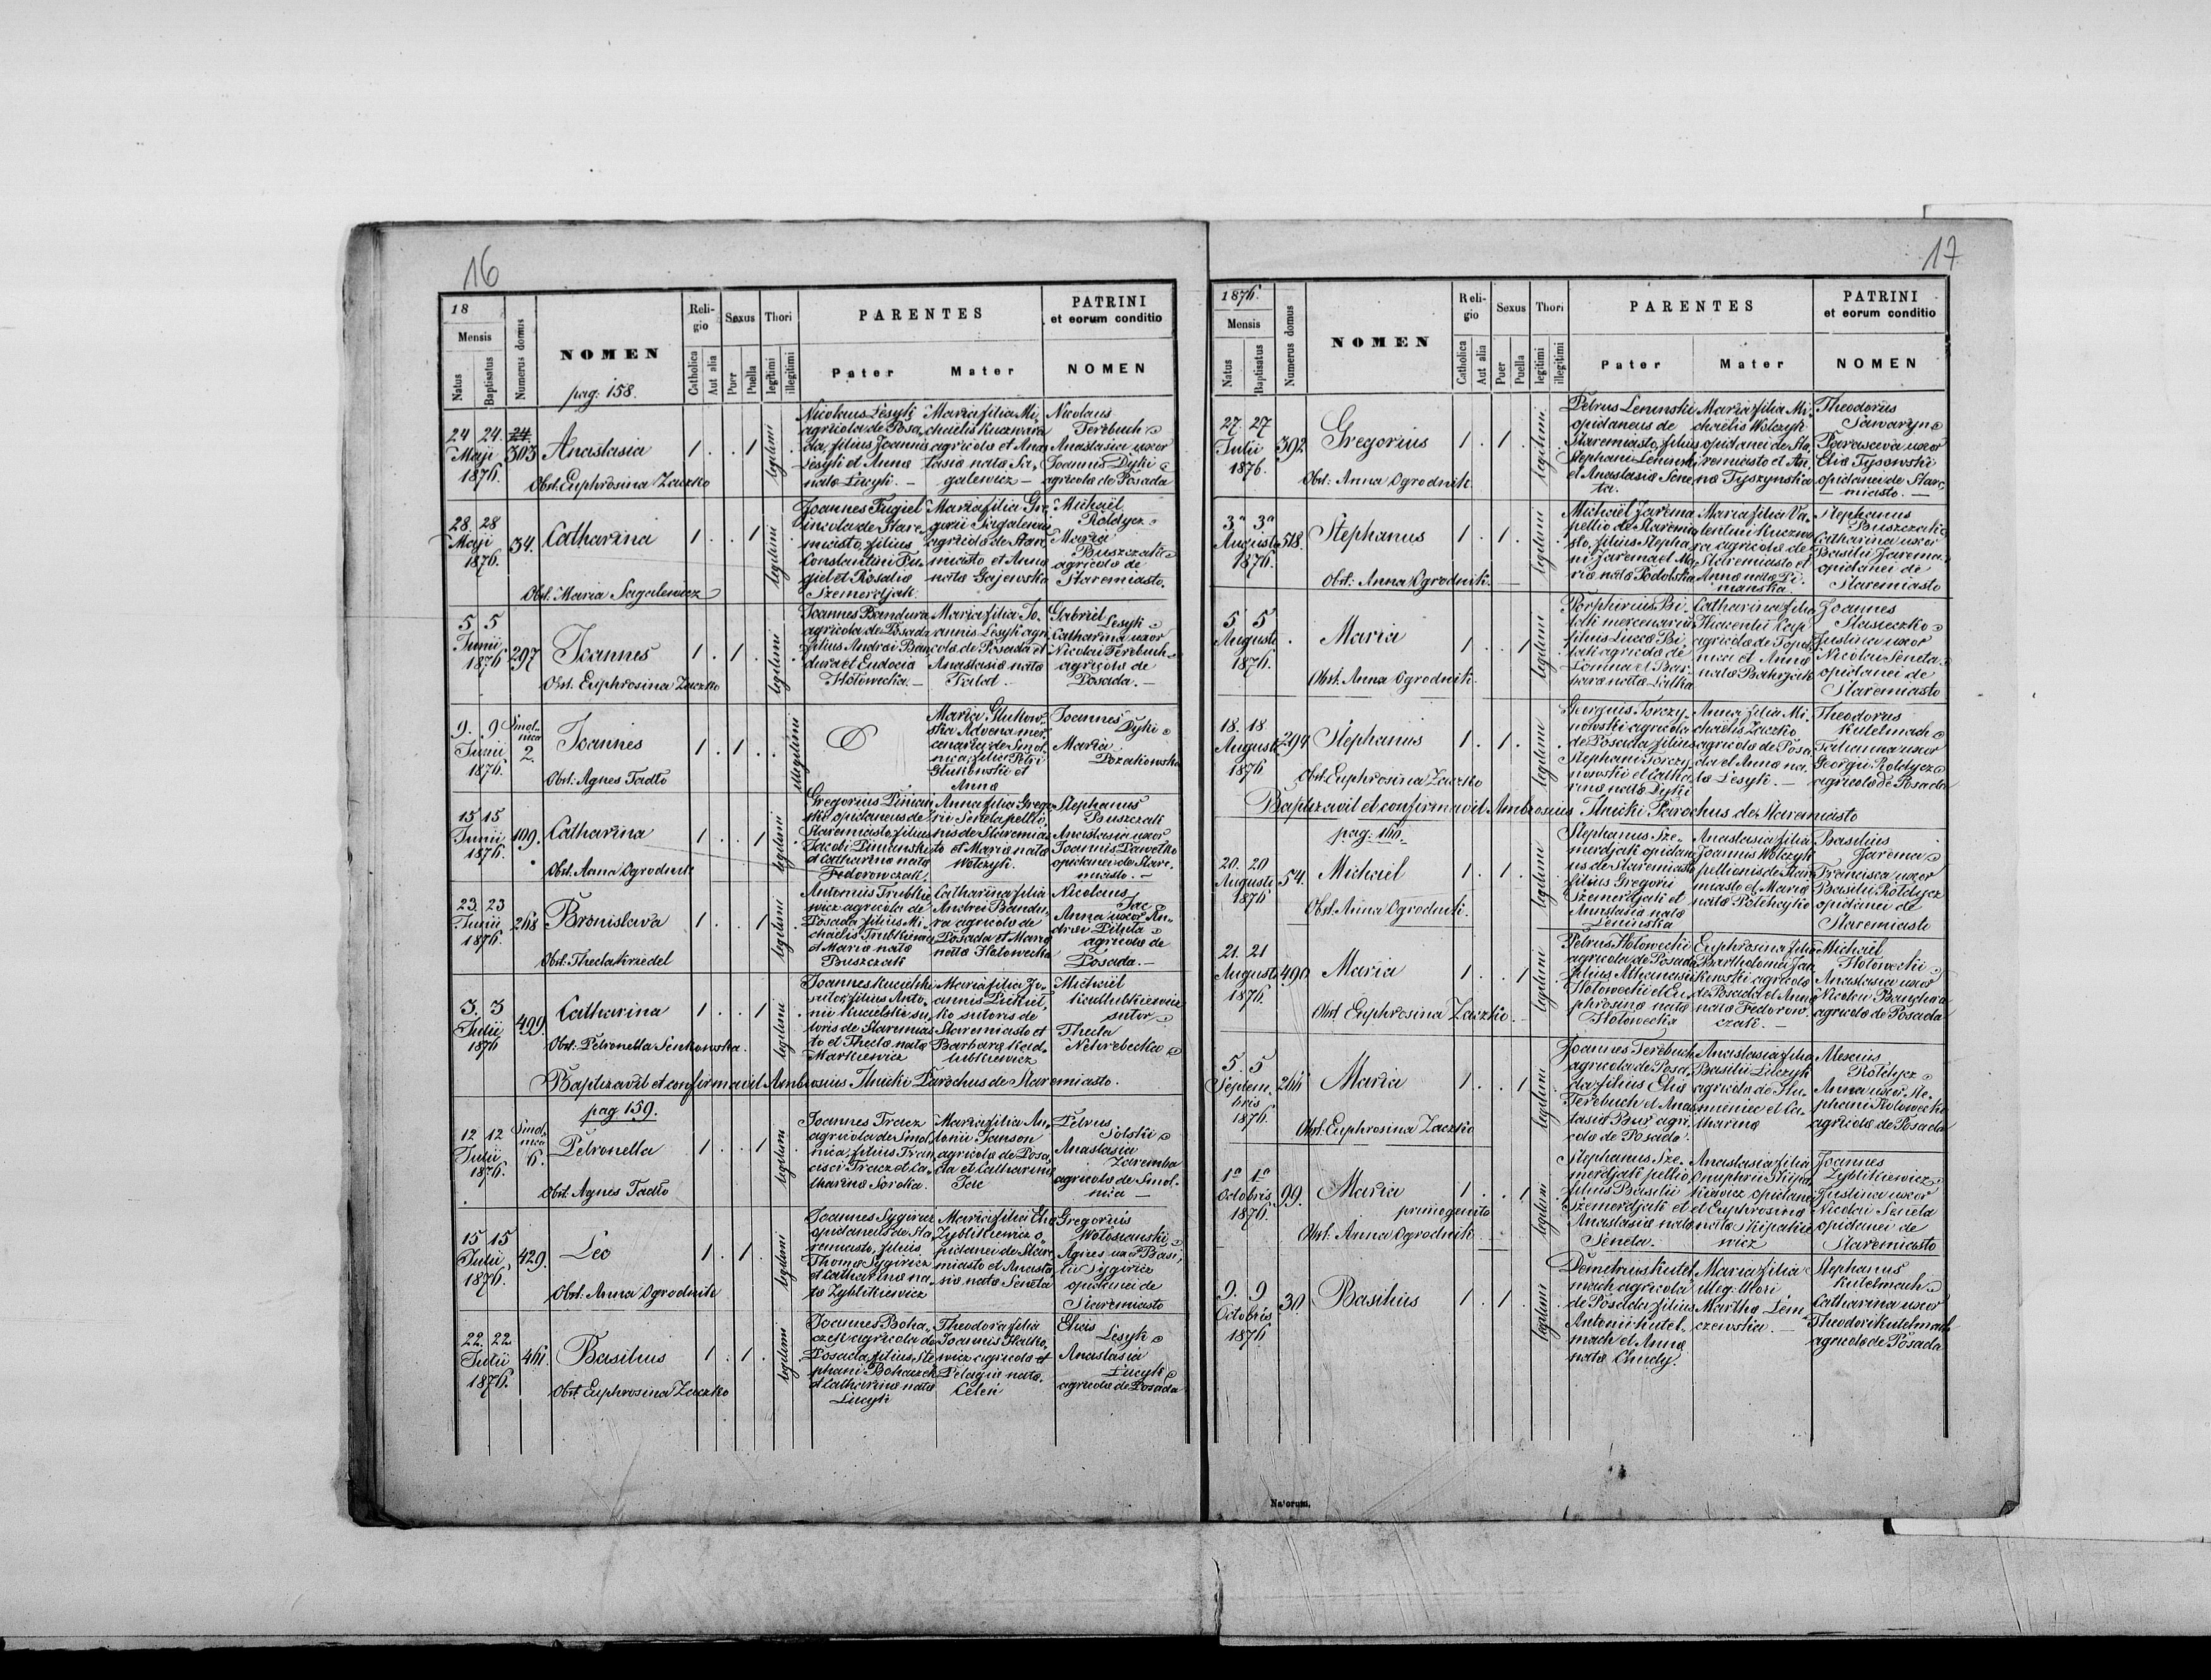 16
18
Mensis
Natus
Baptisatus
Numerus domus
NOMEN
pag: 158.
Reli-
gio
Catholica
Aut alia
Sexus
Puer
Puella
Thori
legitimi
illegitimi
PARENTES
Pater
Mater
PATRINI
et eorum conditio
NOMEN
24 24.
Maji
1876.
24
303
Anastasia
Obst. Euphrosina Zaczko
1 . . 1
legitimi
Nicolaus Lesyk
agricola de Posa-
da, filius Joannis
Lesyk et Annæ
natæ Lucyk. –
Maria filia Mi-
chaëlis Kuczwara
agricolæ et Anas
tasiæ natæ Sa-
galewicz –
Nicolaus
Terebuch
Anastasia uxor
Joannis Dyki
agricolæ de Posada
28. 28
Maji
1876.
34.
Catharina
Obst. Maria Sagalewicz
1 . . 1
legitimi
Joannes Fugiel
incola de Stare-
miasto, filius
Constantini Fu-
giel et Rosaliæ
Szemerdjak.
Maria filia Gre-
gorii
agricolæ de Stare
miasto et Annæ
natæ Gajewska
Michaël
Roldycz
Maria
Buszczak
agricolæ de
Staremiasto.
5 5
Junii
1876
297
Joannes
Obst. Euphrosina Zaczko
1 . 1 .
legitimi
Joannes Bandura
agricola de Posada
filius Andreæ Ban
dura et Eudocia
Hołowecka. –
Maria filia Jo-
annis Lesyk agri
colæ de Posada et
Anastasiæ natæ
Gabriel
Lesyk
Catharina uxor
Nicolai Terebuch
agricolæ de
Posada. –
9. 9
Junii
1876.
Smol-
nica
2.
Joannes
Obst: Agnes Tadło
1 . 1 . .
illegitimi
Maria Glukow-
ska Advena mer
cenaria de Smol
nica, filia Petri
Glukowski et
Annæ
Joannes
Dyki
Maria
Pozakowska
15 15
Junii
1876.
109.
Catharina
Obst. Anna Ogrodnik
1 . . 1
legitimi
Gregorius Piniań
ski opidaneus de
Staremiasto, filius
Jacobi Pimanski
et Catharinæ natæ
Fedorowczak.
Anna filia Grego
rii Seneta pellio-
nis de Staremias
to et Mariæ natæ
Wołczyk.
Stephanus
Buszczak
Anastasia uxor
Joannis Pawełko
opidanei de Stare-
miasto. –
23. 23
Junii
1876.
268
Bronislava
Obst: Thecla Kriedel
1 . . 1
legitimi
Antonius Trubkie
wicz agricola de
Posada, filius Mi-
chaëlis Trubkiewicz
et Mariæ natæ
Buszczak
Catharina filia
Andrei Bandu-
ra agricolæ de
Posada et Mariæ
natæ Hołowecka
Nicolaus
Jac
Anna uxor An-
drei Pitula
agricolæ de
Posada. –
3. 3
Julii
1876
499.
Catharina
Obst: Petronella Senkowska.
1 . . 1
legitimi
Joannes Kucielski
sutor, filius Anto-
nii Kucielski su-
toris de Staremias
to et Theclæ natæ
Markiewicz
Maria filia Jo-
annis
sutoris de
Staremiasto et
Barbaræ Kad-
lubkiewicz
Michaël
Kadlubkiewicz
sutor
Thecla
Nehrebecka
Baptizavit et confirmavit Ambrosius Ilnicki Parochus de Staremiasto.
pag 159.
12 12
Julii
1876.
Smol-
nica
6.
Petronella
Obst. Agnes Tadło
1 . . 1
legitimi
Joannes Tracz
agricola de Smol
nica, filius Fran
cisci Tracz et Ca-
tharinæ Soroka.
Maria filia An-
tonii Janson
agricolæ de Posa-
da et Catharinæ
Jac
Petrus
Solski
Anastasia
Zaremba
agricolæ de Smol-
nica –
15 15
Julii
1876.
429.
Leo
Obst. Anna Ogrodnik
1 . 1 .
legitimi
Joannes Sygierycz
opidaneus de Sta-
remiasto, filius
Thomæ Sygierycz
et Catharinæ na-
tæ Zyblikiewicz
Maria filia Eliæ
Zyblikiewicz o-
pidanei de Stare
miasto et Anasta
siæ natæ Seneta
Gregorius
Wołosianski
Agnes uxor Basi-
lii Sygierycz
opidanei de
Staremiasto
22. 22.
Julii
1876.
461.
Basilius
Obst Euphrosina Zaczko
1 . 1 .
legitimi
Joannes Boha-
czek agricola de
Posada, filius Ste
phani Bohaczek
et Catharinæ natæ
Lucyk
Theodora filia
Joannis Hatko-
wicz agricolæ et
Pelagiæ natæ
Celeń
Elias
Lesyk
Anastasia
Lucyk
agricolæ de Posada
17
1876.
Mensis
Natus
Baptisatus
Numerus domus
NOMEN
Reli-
gio
Catholica
Aut alia
Sexus
Puer
Puella
Thori
legitimi
illegitimi
PARENTES
Pater
Mater
PATRINI
et eorum conditio
NOMEN
27. 27
Julii
1876.
392
Gregorius
Obst: Anna Ogrodnik
1 . 1 .
legitimi
Petrus Leninski
opidaneus de
Staremiasto, filius
Stephani Leninski
et Anastasiæ Sene
ta.
Maria filia Mi-
chaëlis Wolczyk
opidanei de Sta-
remiasto et An-
næ Tyszynska
Theodorus
Sawaryn
Parasceva uxor
Eliæ Tysowski
opidanei de Stare
– miasto. –
3a 3a
Augusti
1876.
518.
Stephanus
Obst: Anna Ogrodnik.
1 . 1 .
legitimi
Michaël Jarema
pellio de Staremia
sto, filius Stepha
ni Jarema et Ma
riæ natæ Podolska
Maria filia Va-
lentini Kuczwa
ra agricolæ de
Staremiasto et
Annæ natæ Pi-
manska.
Stephanus
Buszczak
Catharina uxor
Basilii Jarema
opidanei de
Staremiasto
5 5
Augusti
1876.
.
Maria
Obst. Anna Ogrodnik
1 . . 1
legitimi
Porphirius Bi-
lak mercenarius
filius Lucæ Bi
lak agricolæ de
Łomna et Bar-
baræ natæ Lalka
Catharina filia
Hiacentii Kap
agricolæ de Topol-
nica et Annæ
natæ Bahrjak
Joannes
Stasieczko
Justina uxor
Nicolai Seneta
opidanei de
Staremiasto
18. 18
Augusti
1876
294
Stephanus
Obst. Euphrosina Zaczko
1 . 1 .
legitimi
Georgius Torczy-
nowski agricola
de Posada filius
Stephani Torczy
nowski et Catha
rinæ natæ Dyki
Anna filia Mi-
chaëlis Zaczko
agricolæ de Posa
da et Annæ na-
tæ Lesyk. –
Theodorus
Kutelmach
Tatianna uxor
Georgii Roldycz
agricolæ de Posada
Baptizavit et confirmavit Ambrosius Ilnicki Parochus de Staremiasto
pag: 160.
20. 20
Augusti
1876
54.
Michaël
Obst. Anna Ogrodnik.
1 . 1 .
legitimi
Stephanus Sze-
merdjak opidane
us de Staremiasto
filius Gregorii
Szemerdjak et
Anastasiæ natæ
Leninska
Anastasia filia
Joannis Wolczyk
pellionis de Stare
miasto et Mariæ
natæ Potehcyko
Basilius
Jarema
Francisca uxor
Basilii Roldycz
opidanei de
Staremiasto
21. 21
Augusti
1876.
490
Maria
Obst Euphrosina Zaczko. –
1 . . 1
legitimi
Petrus Hołowecki
agricola de Posada
filius Athanasii
Hołowecki et Eu-
phrosinæ natæ
Hołowecka
Euphrosina filia
Bartholomei Jan
kowski agricolæ
de Posada et Annæ
natæ Fedorow-
czak. –
Michaël
Hołowecki
Anastasia uxor
Nicolai Bandura
agricolæ de Posada
5. 5
Septem-
bris
1876.
266
Maria
Obst. Euphrosina Zaczko
1 . . 1
legitimi
Joannes Terebuch
agricola de Posa-
da filius Eliæ
Terebuch et Anas
tasiæ Bus agri-
colæ de Posada.
Anastasia filia
Basilii Liczyk
agricolæ de Stu-
meniec et Ca-
tharinæ
Alexius
Roldycz
Anna uxor Ste-
phani Hołowecki
agricolæ de Posada
1a 1a
Octobris
1876.
99.
Maria
primogenita
Obst. Anna Ogrodnik
1 . . 1
legitimi
Stephanus Sze-
merdjak pellio,
filius Basilii
Szemerdjak et
Anastasiæ natæ
Seneta.
Anastasia filia
Onuphrii Skipa-
kiewicz opidanei
et Euphrosinæ
natæ Skipakie
wicz
Joannes
Zyblikiewicz
Justina uxor
Nicolai Seneta
opidanei de
Staremiasto
9. 9
Octobris
1876
30.
Basilius
1 . 1 .
legitimi
Demetrius Kutel
mach agricola
de Posada filius
Antonii Kutel-
mach et Annæ
natæ Chudy.
Maria filia
illeg: thori
Marthæ Lem-
czewska. –
Stephanus
Kutelmach
Catharina uxor
Theodori Kutelmach
agricolæ de Posada
Natorum.